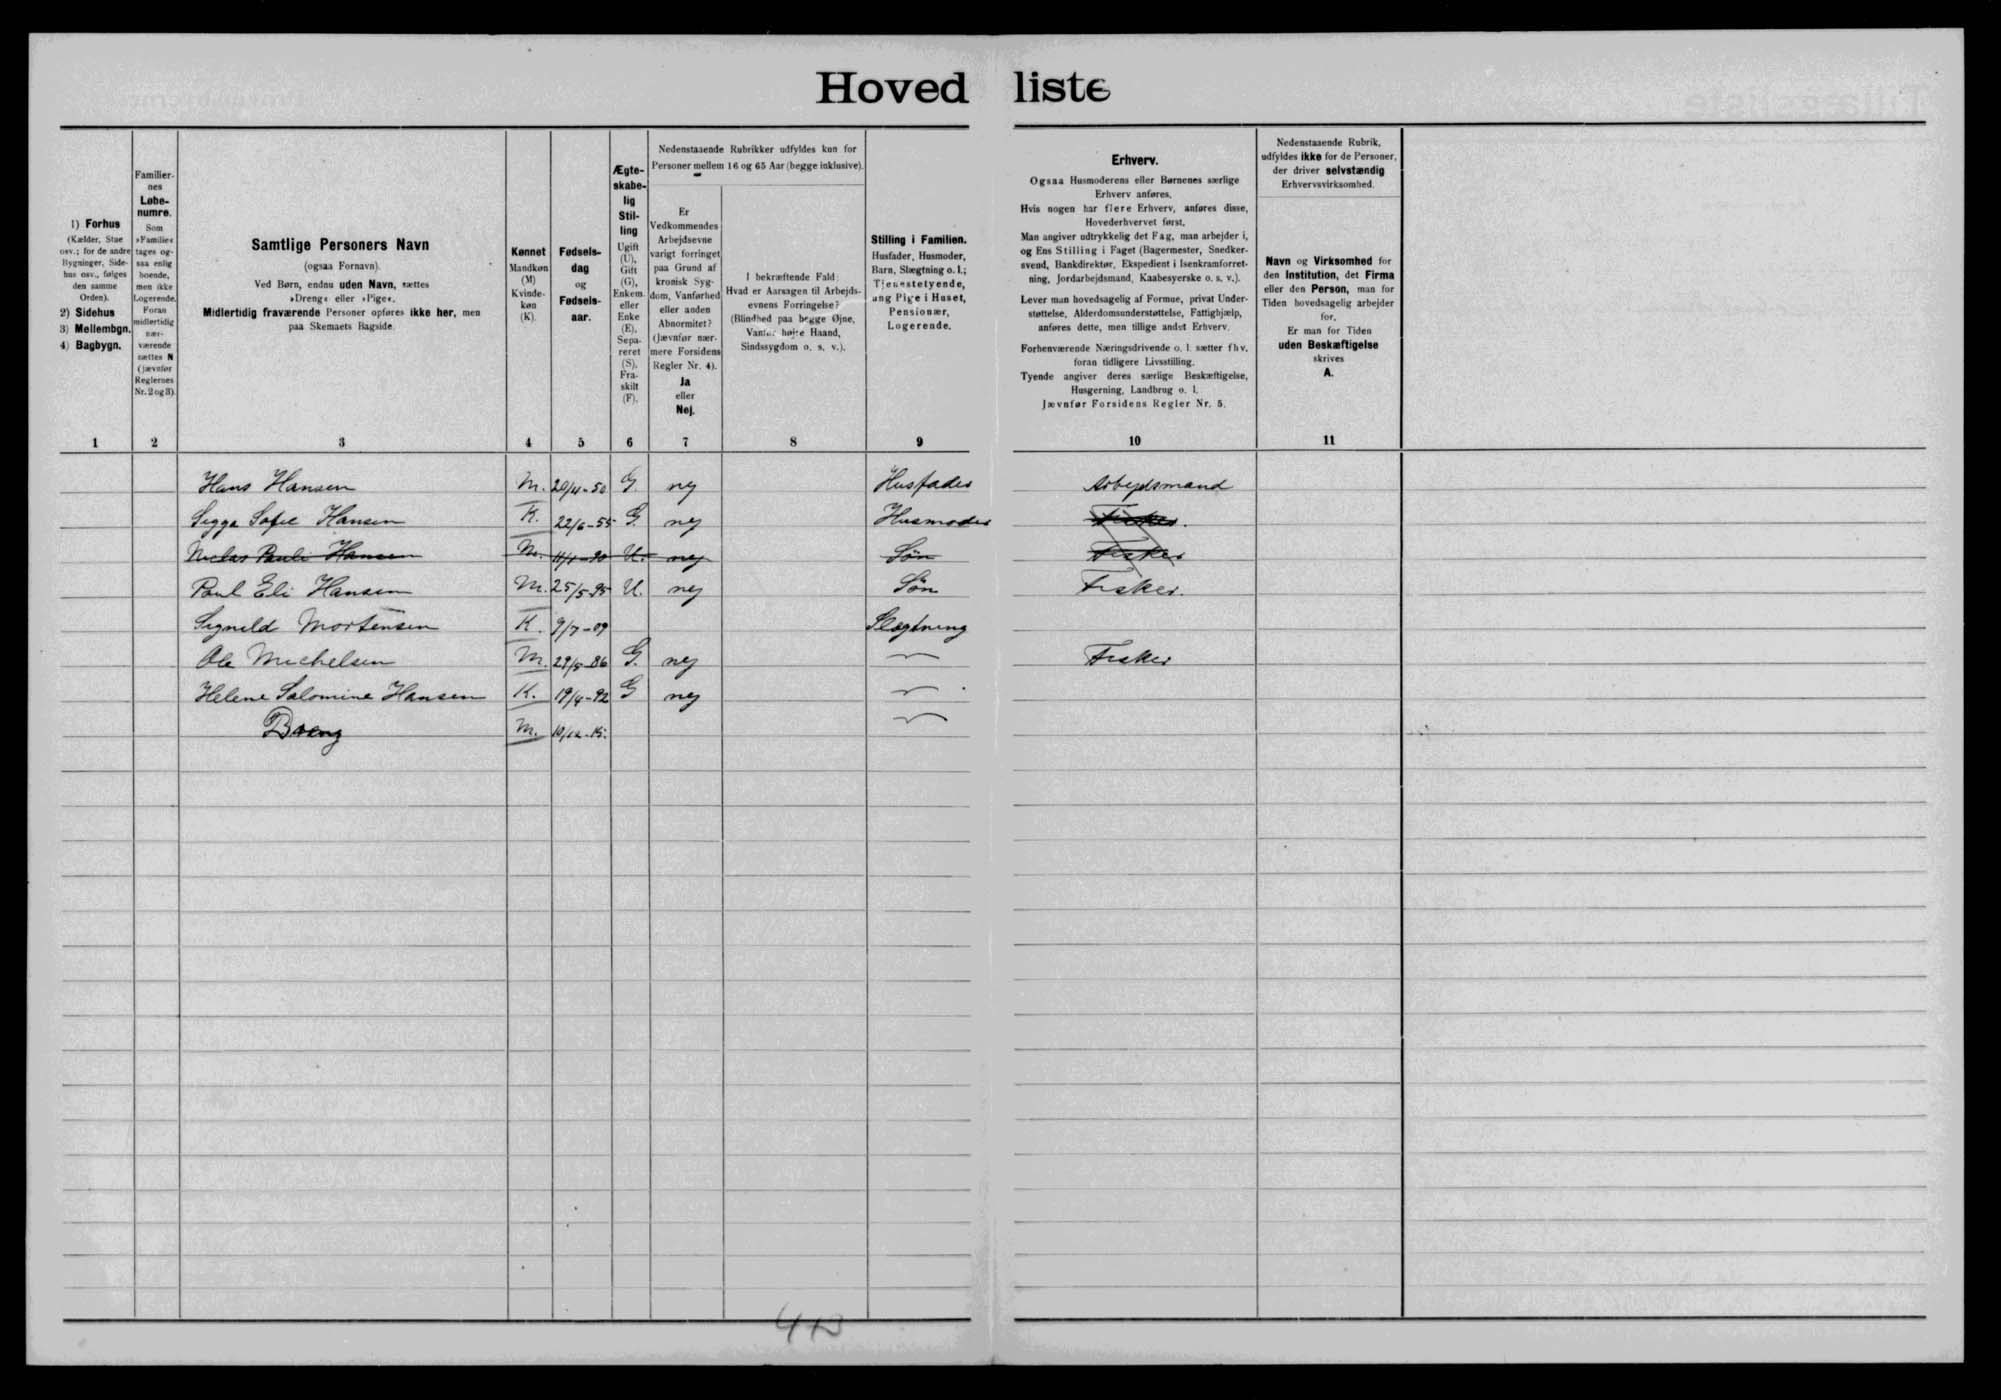 Hovedliste
1) Forhus
(Kælder, Stue
osv.; for de andre
Bygninger, Side-
hus osv., følges
den samme
Orden).
2) Sidehus
3) Mellembgn.
4) Bagbygn.
1
Familier-
nes
Løbe-
numre.
Som
»Familie«
tages og-
saa enlig
boende,
men ikke
Logerende.
Foran
midlertidig
nær-
værende
sættes N
(jævnfør
Reglernes
Nr. 2 og 3).
2
Samtlige Personers Navn
(ogsaa Fornavn).
Ved Børn, endnu uden Navn, sættes
»Dreng« eller »Pige«.
Midlertidig fraværende Personer opføres ikke her, men
paa Skemaets Bagside.
3
Kønnet
Mandkøn
(M)
Kvinde-
køn
(K).
4
Fødsels-
dag
og
Fødsels-
aar.
5
Ægte-
skabe-
lig
Stil-
ling
Ugift
(U),
Gift
(G),
Enkem.
eller
Enke
(E),
Sepa-
reret
(S),
Fra-
skilt
(F).
6
Nedenstaaende Rubrikker udfyldes kun for
Personer mellem 16 og 65 Aar (begge inklusive).
Er
Vedkommendes
Arbejdsevne
varigt forringet
paa Grund af
kronisk Syg-
dom, Vanførhed
eller anden
Abnormitet?
(Jævnfør nær-
mere Forsidens
Regler Nr. 4).
Ja
eller
Nej.
7
I bekræftende Fald:
Hvad er Aarsagen til Arbejds-
evnens Forringelse?
(Blindhed paa begge Øjne,
Vanfør højre Haand,
Sindssygdom o. s. v.).
8
Stilling i Familien.
Husfader, Husmoder,
Barn, Slægtning o. l.;
Tjenestetyende,
ung Pige i Huset,
Pensionær,
Logerende.
9
Erhverv.
Ogsaa Husmoderens eller Børnenes særlige
Erhverv anføres.
Hvis nogen har flere Erhverv, anføres disse,
Hovederhvervet først.
Man angiver udtrykkelig det Fag, man arbejder i,
og Ens Stilling i Faget (Bagermester, Snedker-
svend, Bankdirektør, Ekspedient i Isenkramforret-
ning, Jordarbejdsmand, Kaabesyerske o. s. v.).
Lever man hovedsagelig af Formue, privat Under-
støttelse, Alderdomsunderstøttelse, Fattighjælp,
anføres dette, men tillige andet Erhverv.
Forhenværende Næringsdrivende o. l. sætter fhv.
foran tidligere Livsstilling.
Tyende angiver deres særlige Beskæftigelse,
Husgerning, Landbrug o. l.
Jævnfør Forsidens Regler Nr. 5.
10
Nedenstaaende Rubrik,
udfyldes ikke for de Personer,
der driver selvstændig
Erhvervsvirksomhed.
Navn og Virksomhed for
den Institution, det Firma
eller den Person, man for
Tiden hovedsagelig arbejder
for.
Er man for Tiden
uden Beskæftigelse
skrives
A.
11
Hans Hansen M. 20/4-50 G. nej Husfader Arbejdsmand
Sigga Sofie Hansen K. 22/6-55 G. nej Husmoder Fisker.
Niclas Pauli Hansen M. 11/1-90 U. nej Søn Fisker
Poul Eli Hansen M. 25/5-95 U. nej Søn Fisker.
Signild Mortensen K. 9/7-09 Slægtning
Ole Michelsen M. 29/5-86 G. nej — Fisker
Helene Salomine Hansen K. 19/4-92 G nej —
Dreng M. 10/12-15. —